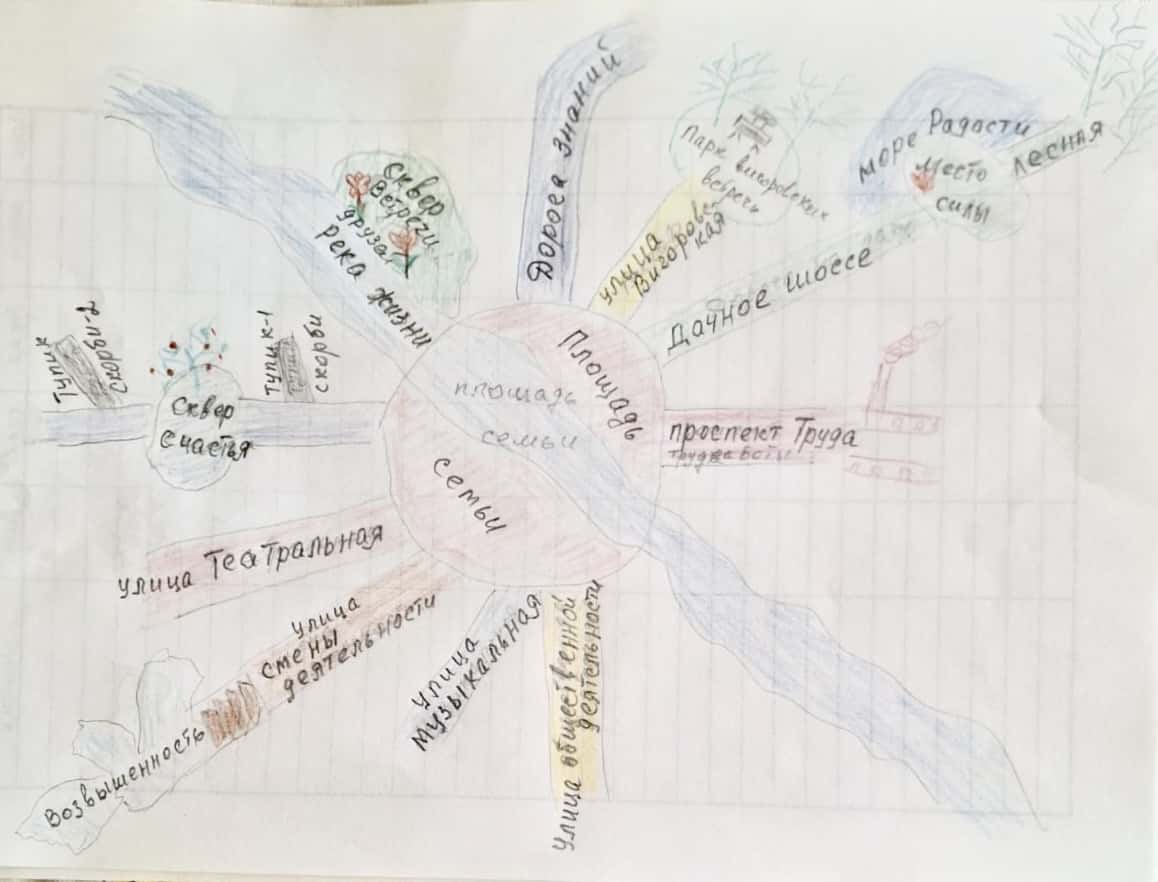 Дорога знаний
Сквер
Встречи
друзей
река жизни
Парк вигоровских
встреч
улица
Вигоровс-
кая
море Радости
Место
силы
Лесная
Дачное шоссе
Тупик
скорби-2
Сквер
счастья
Тупик-1
скорби
площадь
семьи
Площадь
семьи
проспект Труда
улица Театральная
улица
смены
деятельности
Возвышенность
улица
музыкальная
улица общественной
деятельности